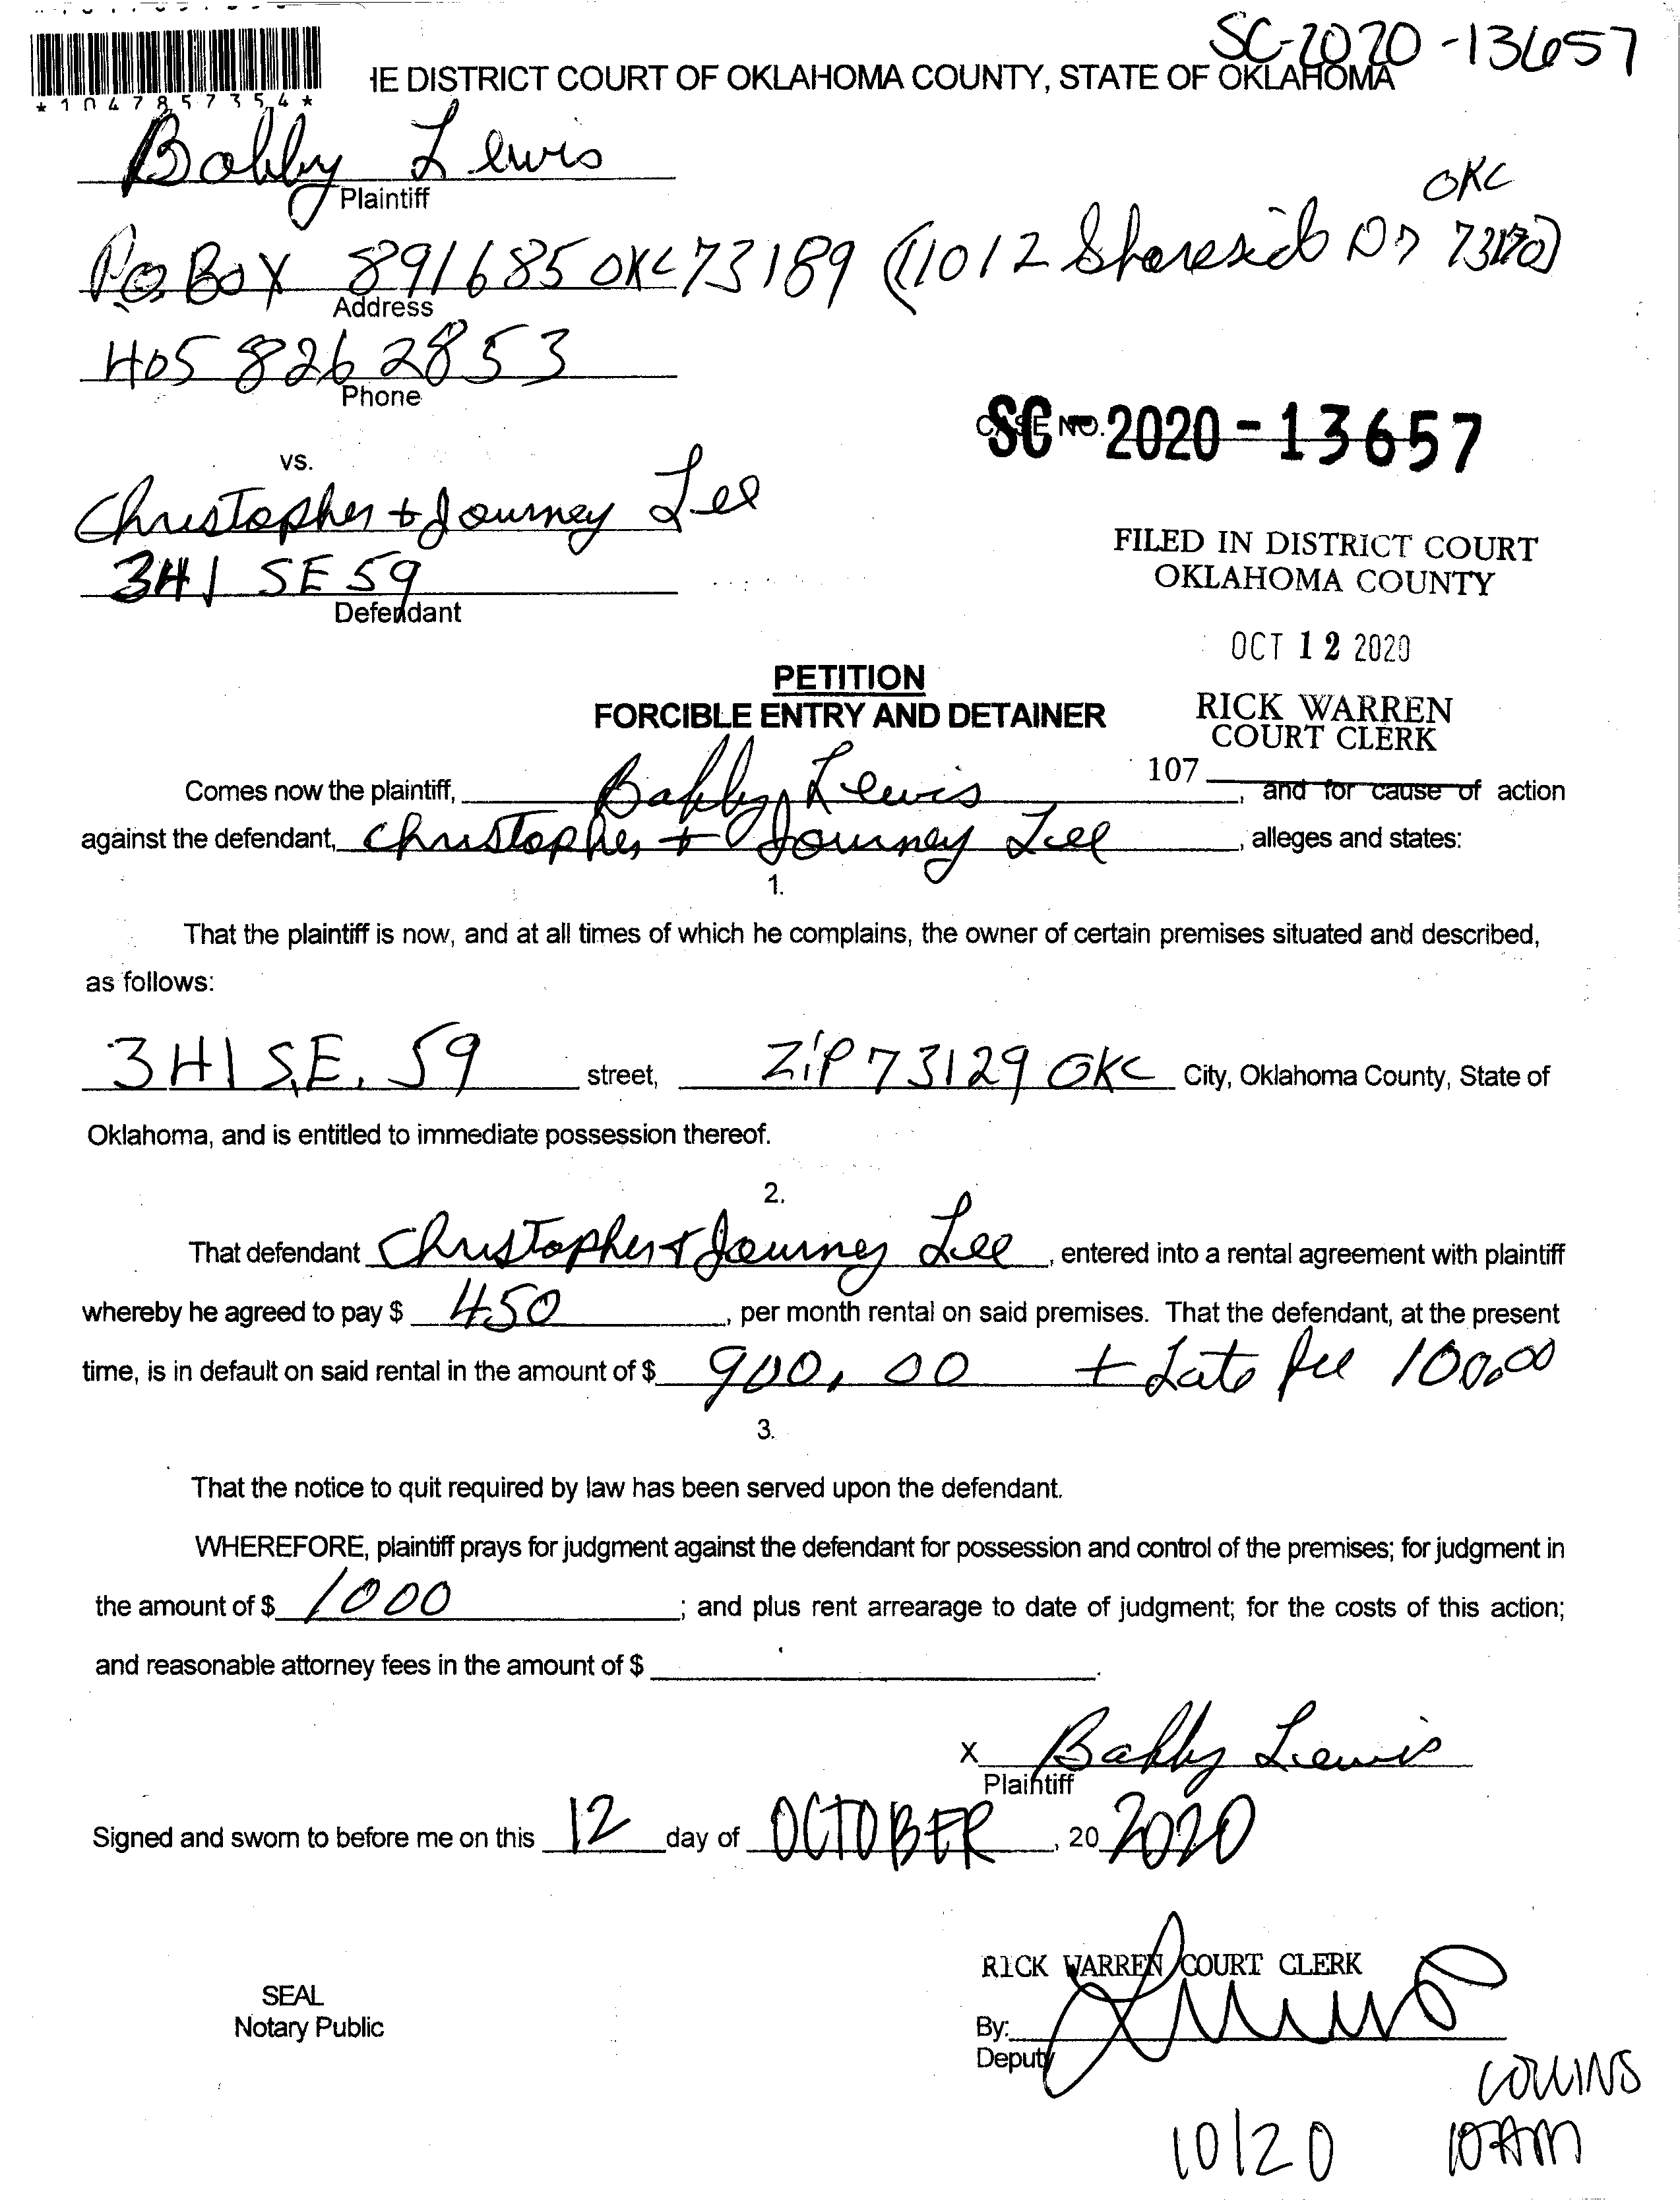 SC-2020-13657
*1047857354*
HE DISTRICT COURT OF OKLAHOMA COUNTY, STATE OF OKLAHOMA
Bobby Lewis
Plaintiff
OKC
P.O. BOX 891685 OKC 73189 (11012 Shoreside Dr 73170)
Address
405 826 2853
Phone
CASE NO.
SC-2020-13657
vs.
Christopher + Journey Lee
341 SE 59
Defendant
FILED IN DISTRICT COURT
OKLAHOMA COUNTY
OCT 12 2020
PETITION
FORCIBLE ENTRY AND DETAINER
RICK WARREN
COURT CLERK
107
Comes now the plaintiff, Bobby Lewis, and for cause of action
against the defendant, Christopher + Journey Lee, alleges and states:
1.
That the plaintiff is now, and at all times of which he complains, the owner of certain premises situated and described,
as follows:
341 S.E. 59 street, ZiP 73129 OKC City, Oklahoma County, State of
Oklahoma, and is entitled to immediate possession thereof.
2.
That defendant Christopher + Journey Lee, entered into a rental agreement with plaintiff
whereby he agreed to pay $ 450, per month rental on said premises. That the defendant, at the present
time, is in default on said rental in the amount of $ 900.00 + Late fee 100.00
3.
That the notice to quit required by law has been served upon the defendant.
WHEREFORE, plaintiff prays for judgment against the defendant for possession and control of the premises; for judgment in
the amount of $ 1000; and plus rent arrearage to date of judgment; for the costs of this action;
and reasonable attorney fees in the amount of $
X Bobby Lewis
Plaintiff
Signed and sworn to before me on this 12 day of OCTOBER, 20 2020
RICK WARREN COURT CLERK
SEAL
Notary Public
By:
Deputy
COLLINS
10/20 10AM